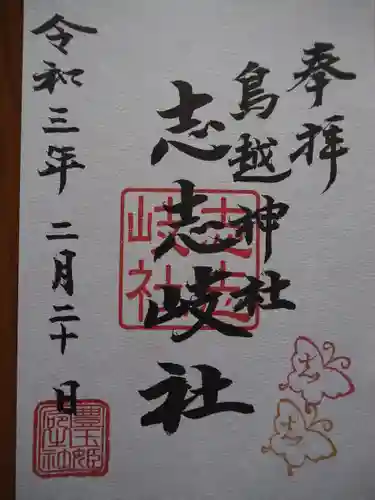 奉拝
鳥越神社
志志岐社
志志岐社
令和三年 二月二十日
豊玉姫
志
志